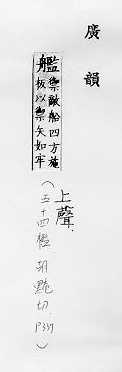 廣韻
艦 禦敵船四方施
板以禦矢如牢
上聲
(五十四檻 胡黤切 P337)